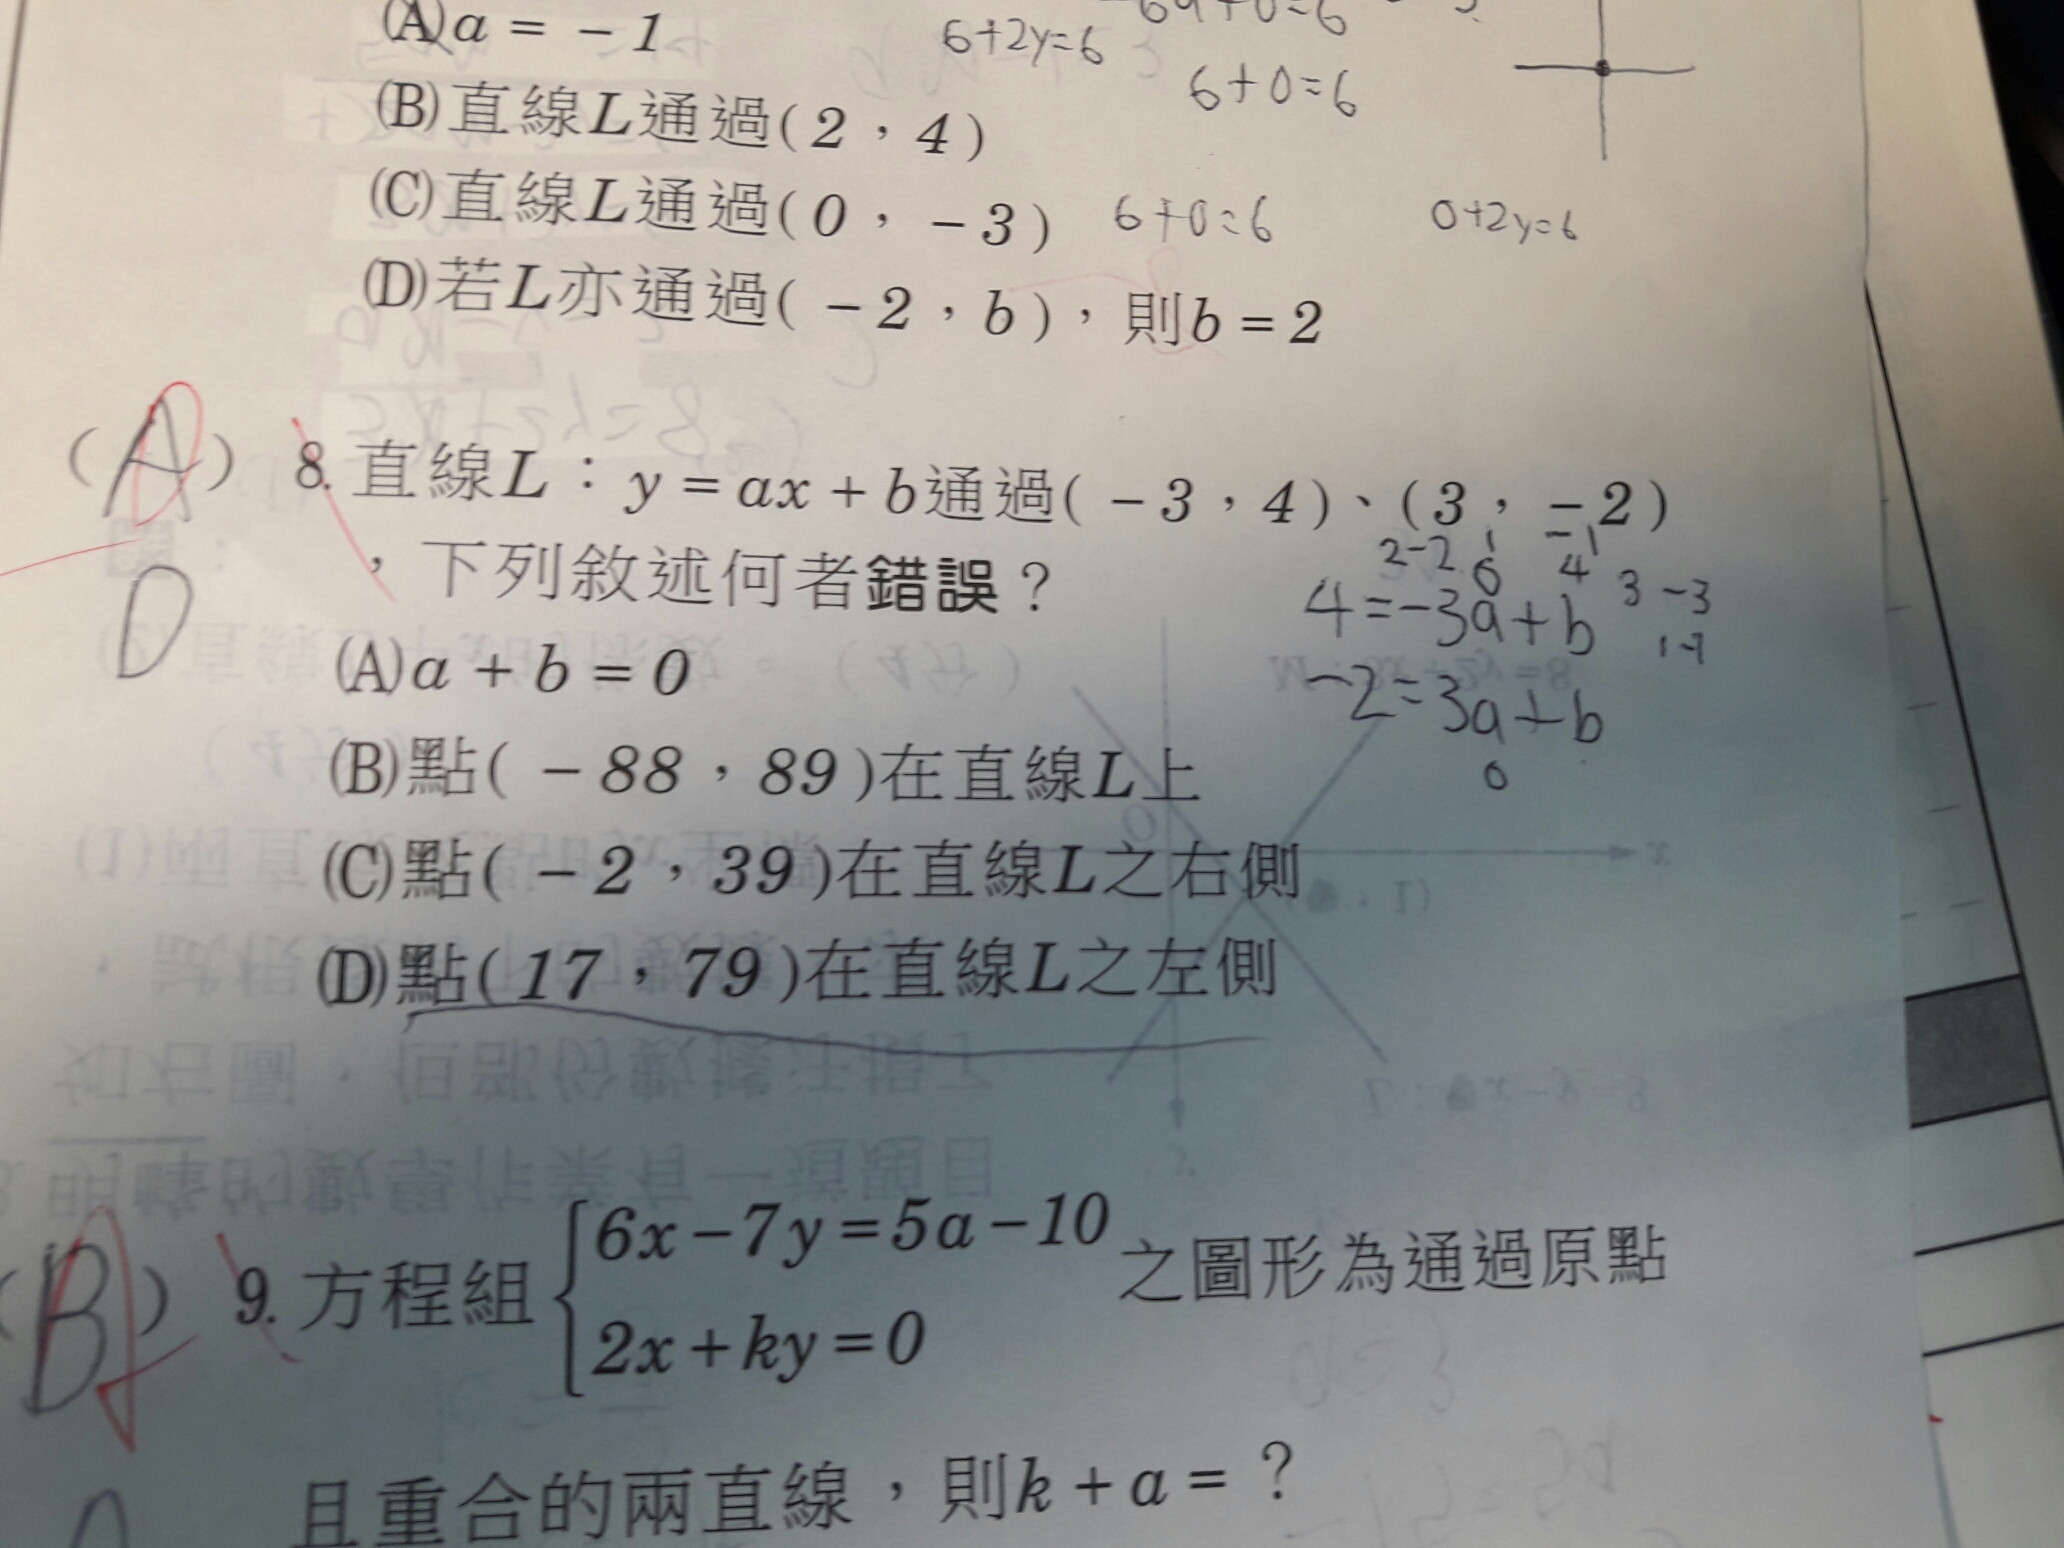 (A)a = −1
6+2y=6
6+0=6
(B)直線L通過(2，4)
(C)直線L通過(0，−3)
6+0=6
0+2y=6
(D)若L亦通過(−2，b)，則b=2
(A) 8. 直線L：y=ax+b通過(−3，4)、(3，−2)
，下列敘述何者錯誤？
D
4=-3a+b
-2=3a+b
0
(A)a+b=0
(B)點(−88，89)在直線L上
(C)點(−2，39)在直線L之右側
(D)點(17，79)在直線L之左側
(B) 9. 方程組{6x−7y=5a−10
2x+ky=0
之圖形為通過原點
且重合的兩直線，則k+a=？